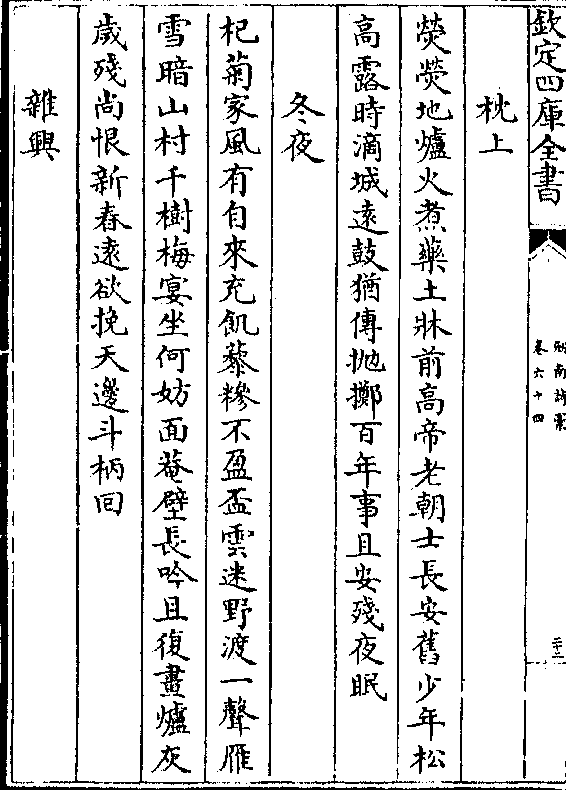 欽定四庫全書
劍南詩槀
卷六十四
二十三
枕上
熒熒地爐火煮藥土牀前高帝老朝士長安舊少年松
高露時滴城遠鼓猶傳拋擲百年事且安殘夜眠
冬夜
杞菊家風有自來充飢藜糝不盈盃雲迷野渡一聲雁
雪暗山村千樹梅宴坐何妨面菴壁長吟且復畫爐灰
歲殘尚恨新春遠欲挽天邊斗柄回
雜興